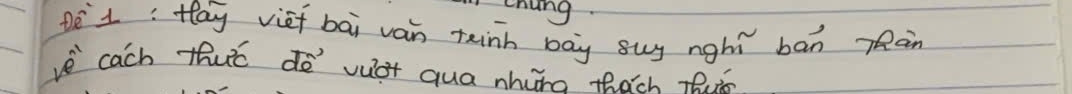 chung.
Đề 1 : Hãy viết bài văn trình bày suy nghĩ bản thân
về cách thức để vượt qua những thách thức